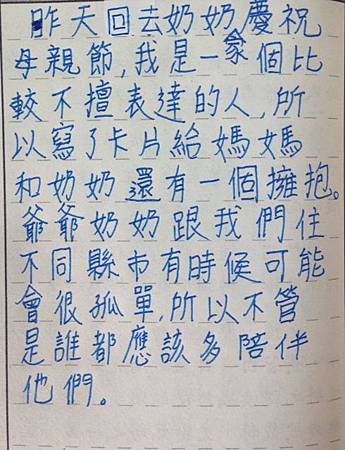 昨天回去奶奶家慶祝
母親節,我是一個比
較不擅表達的人,所
以寫了卡片給媽媽
和奶奶還有一個擁抱。
爺爺奶奶跟我們住
不同縣市有時候可能
會很孤單,所以不管
是誰都應該多陪伴
他們。